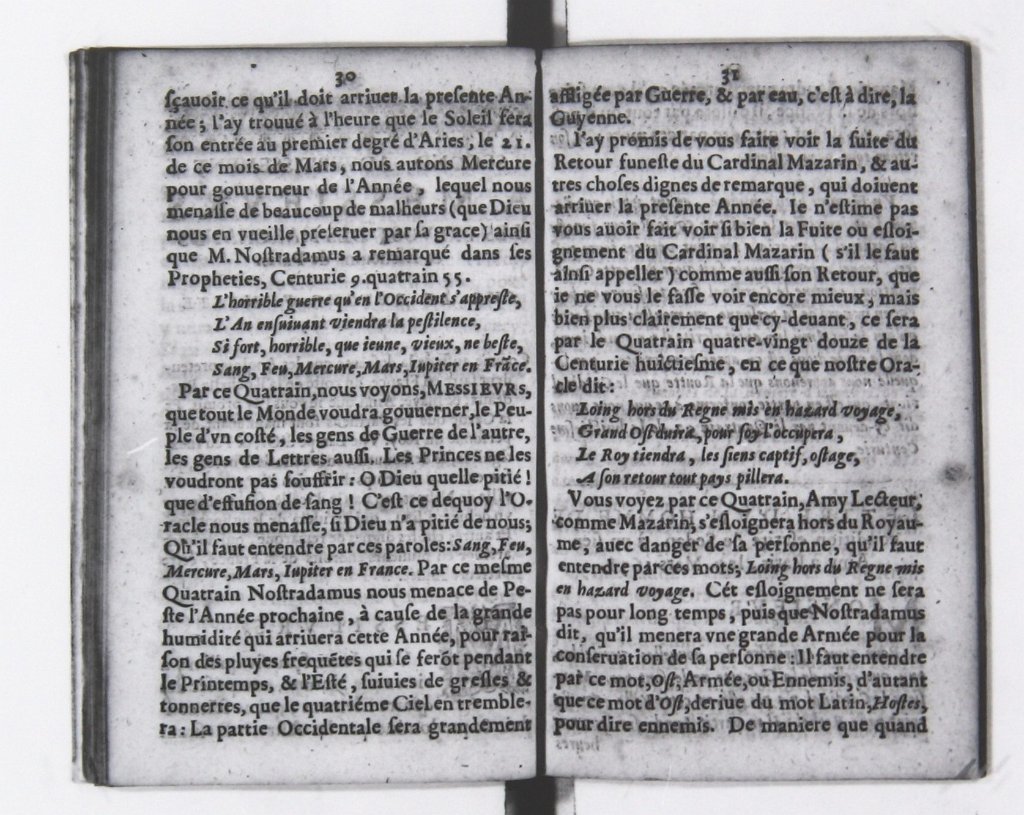 30
ſçauoir ce qu'il doit arriuer la preſente An-
née; l'ay trouué à l'heure que le Soleil ſera
ſon entrée au premier degré d'Aries, le 21.
de ce mois de Mars, nous autons Mercure
pour gouuerneur de l'Année, lequel nous
menaſſe de beaucoup de malheurs (que Dieu
nous en vueille preſeruer par ſa grace) ainſi
que M. Noſtradamus a remarqué dans ſes
Propheties, Centurie 9. quatrain 55.
L'horrible guerre qu'en l'Occident s'appreſte,
L'An enſuiuant viendra la peſtilence,
Si fort, horrible, que ieune, vieux, ne beſte,
Sang, Feu, Mercure, Mars, Iupiter en Frãce.
Par ce Quatrain, nous voyons, MESSIEVRS,
que tout le Monde voudra gouuerner, le Peu-
ple d'vn coſté, les gens de Guerre de l'autre,
les gens de Lettres auſſi. Les Princes ne les
voudront pas ſouffrir: O Dieu quelle pitié!
que d'effuſion de ſang! C'eſt ce dequoy l'O-
racle nous menaſſe, ſi Dieu n'a pitié de nous;
Qu'il faut entendre par ces paroles: Sang, Feu,
Mercure, Mars, Iupiter en France. Par ce meſme
Quatrain Noſtradamus nous menace de Pe-
ſte l'Année prochaine, à cauſe de la grande
humidité qui arriuera cette Année, pour rai-
ſon des pluyes frequẽtes qui ſe ferõt pendant
le Printemps, & l'Eſté, ſuiuies de greſles &
tonnerres, que le quatriéme Ciel en tremble-
ra: La partie Occidentale ſera grandement
31
affligée par Guerre, & par eau, c'eſt à dire, la
Guyenne.
I'ay promis de vous faire voir la ſuite du
Retour funeſte du Cardinal Mazarin, & au-
tres choſes dignes de remarque, qui doiuent
arriuer la preſente Année. Ie n'eſtime pas
vous auoir fait voir ſi bien la Fuite ou eſloi-
gnement du Cardinal Mazarin (s'il le faut
ainſi appeller) comme auſſi ſon Retour, que
ie ne vous le faſſe voir encore mieux, mais
bien plus clairement que cy-deuant, ce ſera
par le Quatrain quatre-vingt douze de la
Centurie huictieſme, en ce que noſtre Ora-
cle dit:
Loing hors du Regne mis en hazard voyage,
Grand Oſt duira, pour ſoy l'occupera,
Le Roy tiendra, les ſiens captif, oſtage,
A ſon retour tout pays pillera.
Vous voyez par ce Quatrain, Amy Lecteur,
comme Mazarin, s'eſloignera hors du Royau-
me, auec danger de ſa perſonne, qu'il faut
entendre par ces mots; Loing hors du Regne mis
en hazard voyage. Cét eſloignement ne ſera
pas pour long temps, puis que Noſtradamus
dit, qu'il menera vne grande Armée pour la
conſeruation de ſa perſonne: Il faut entendre
par ce mot, Oſt, Armée, ou Ennemis, d'autant
que ce mot d'Oſt, deriue du mot Latin, Hoſtes,
pour dire ennemis. De maniere que quand